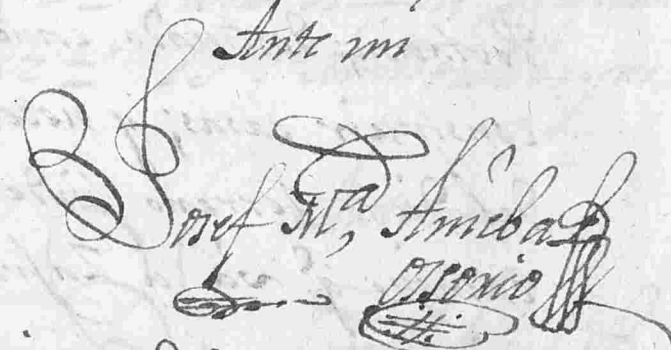 Ante mi
Josef Mª Arrieba
osorio